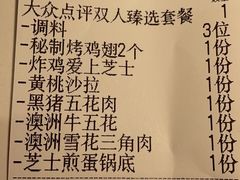 大众点评双人臻选套餐 1
-调料 3位
-秘制烤鸡翅2个 1份
-炸鸡爱上芝士 1份
-黄桃沙拉 1份
-黑猪五花肉 1份
-澳洲牛五花 1份
-澳洲雪花三角肉 1份
-芝士煎蛋锅底 1份